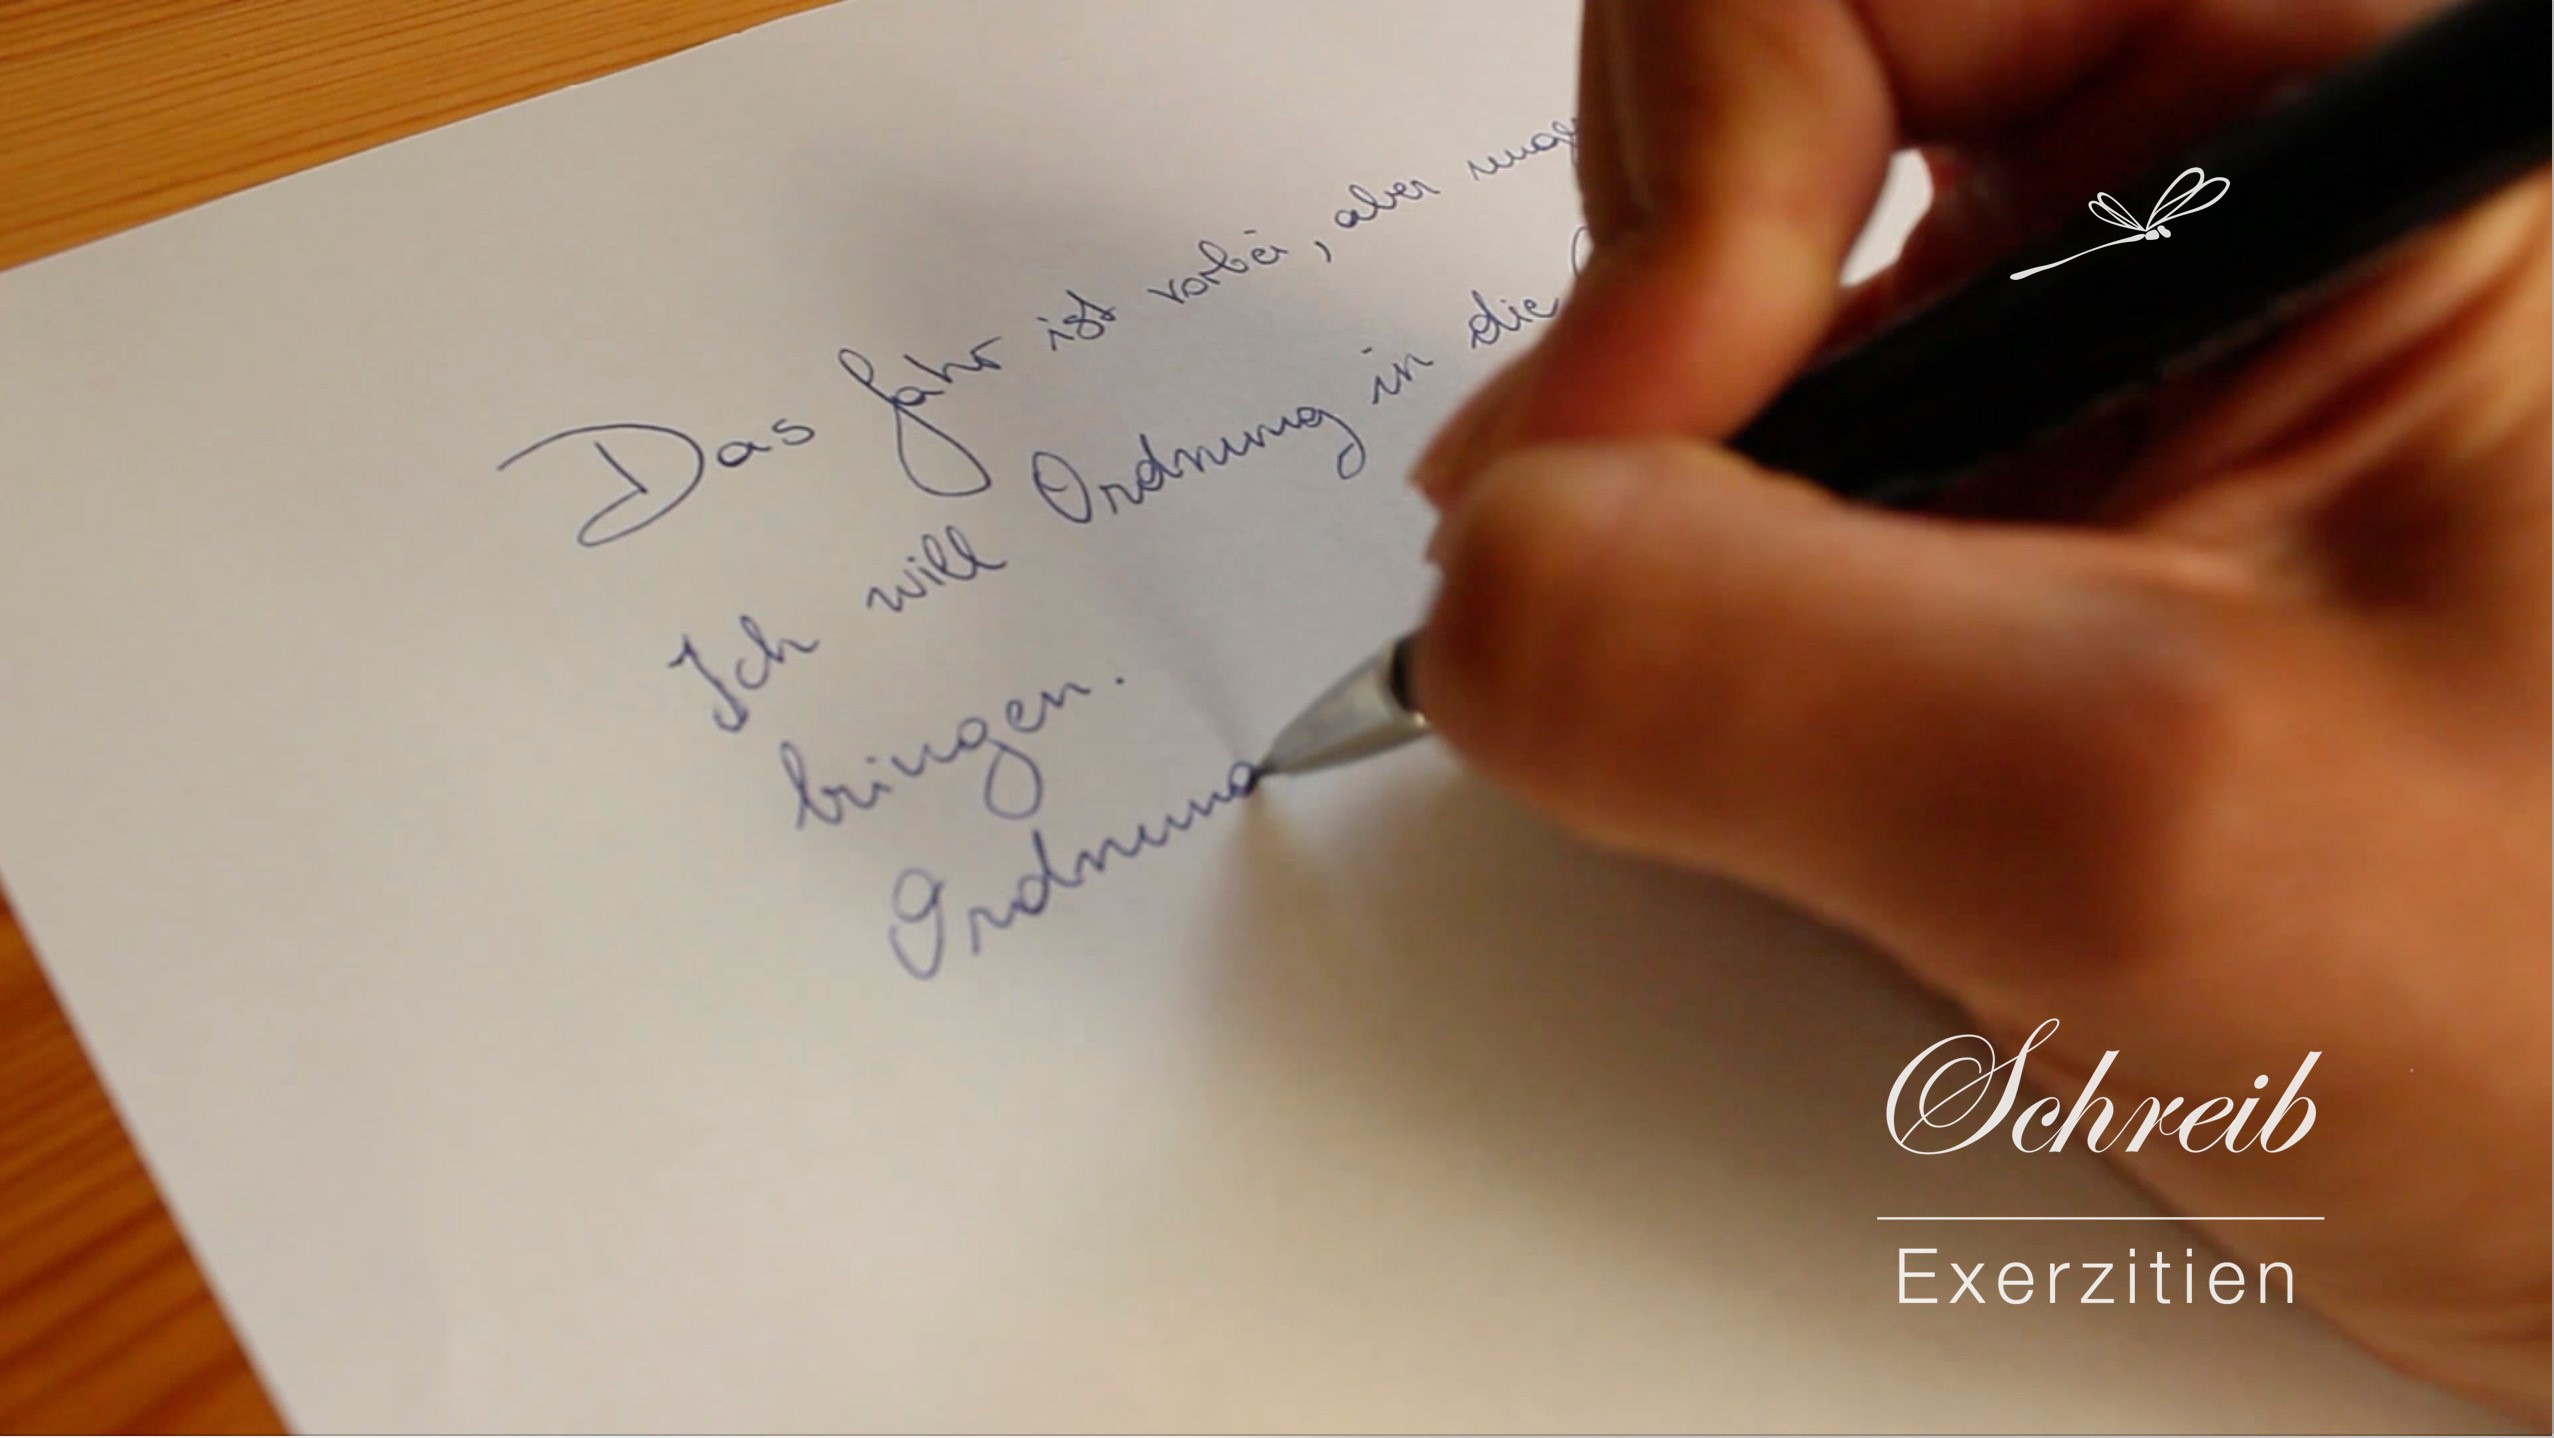 Das Jahr ist vorbei, aber
Ich will Ordnung in die
bringen.
Ordnung
Schreib
Exerzitien